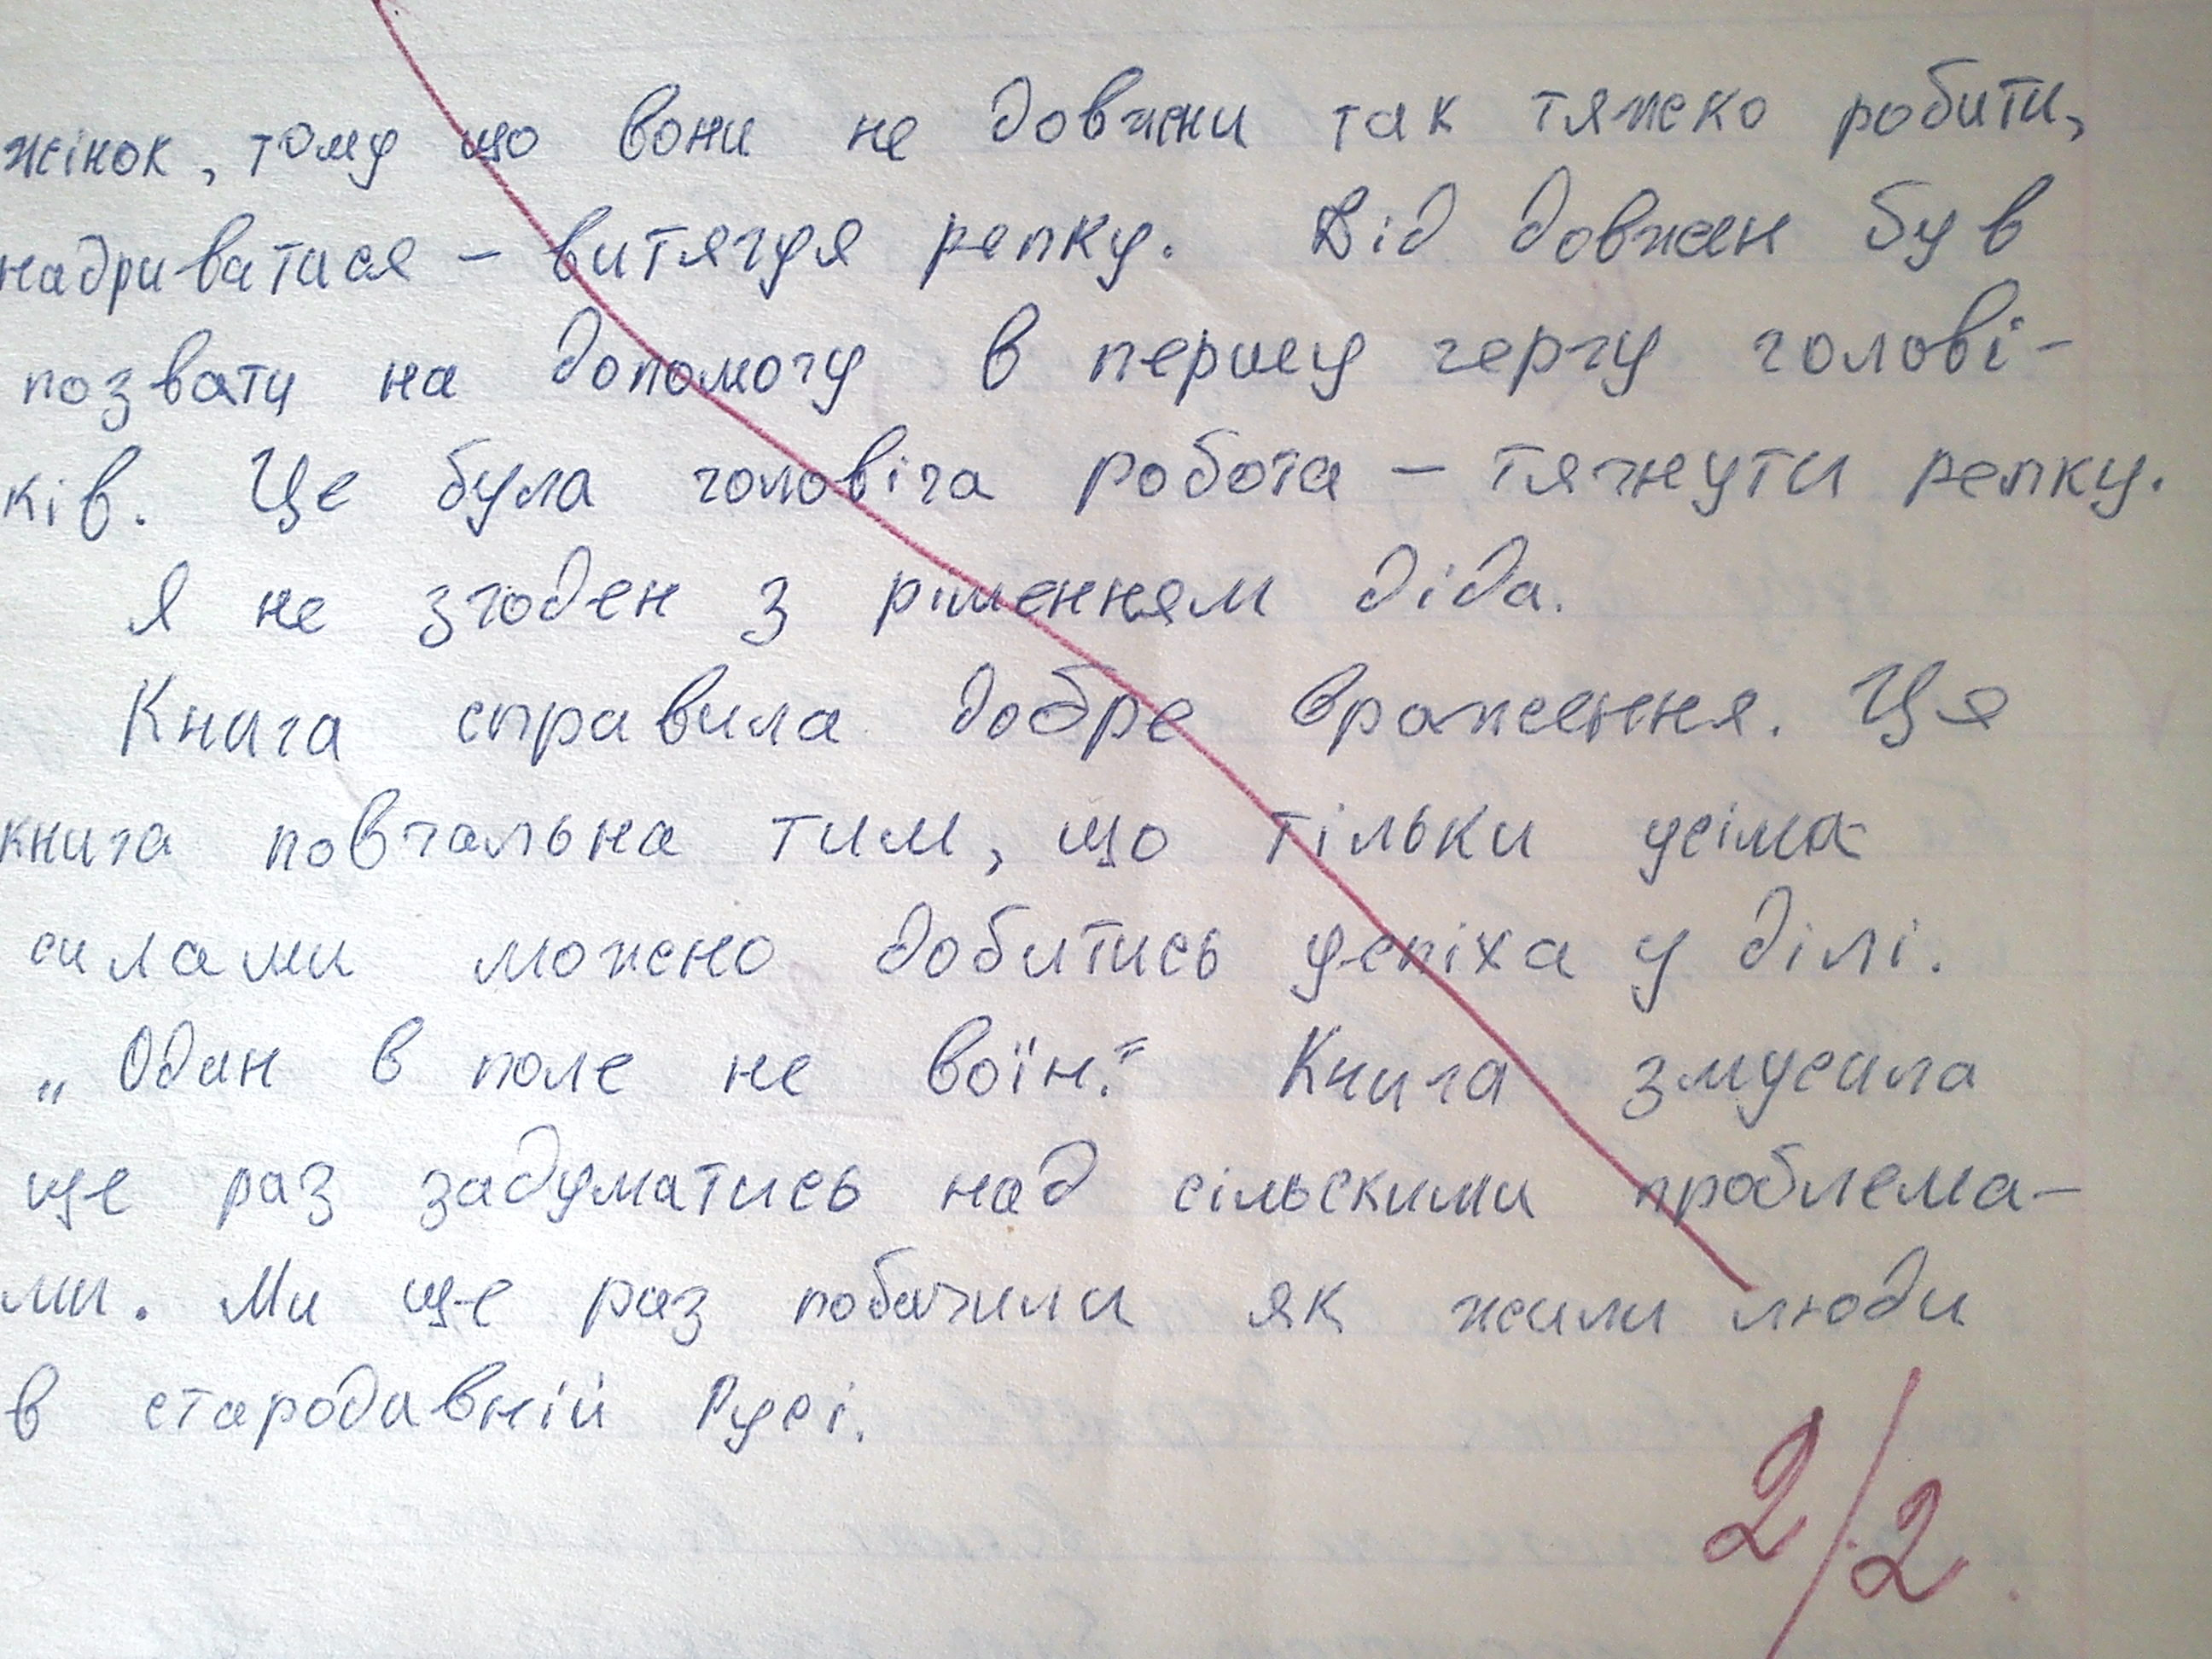 жінок, тому що вони не довжни так тяжко робити,
надриватися – витягуя репку. Дід довжен був
позвати на допомогу в першу чергу голові-
ків. Це була головіча робота – тягнути репку.
Я не згоден з рішенням діда.
Книга справила добре враження. Ця
книга повчальна тим, що тільки усіма
силами можно добитись успіха у ділі.
„Один в поле не воїн.“ Книга змусила
ще раз задуматись над сільскими проблема-
ми. Ми ще раз побачили як жили люди
в стародавній Русі.
2/2.